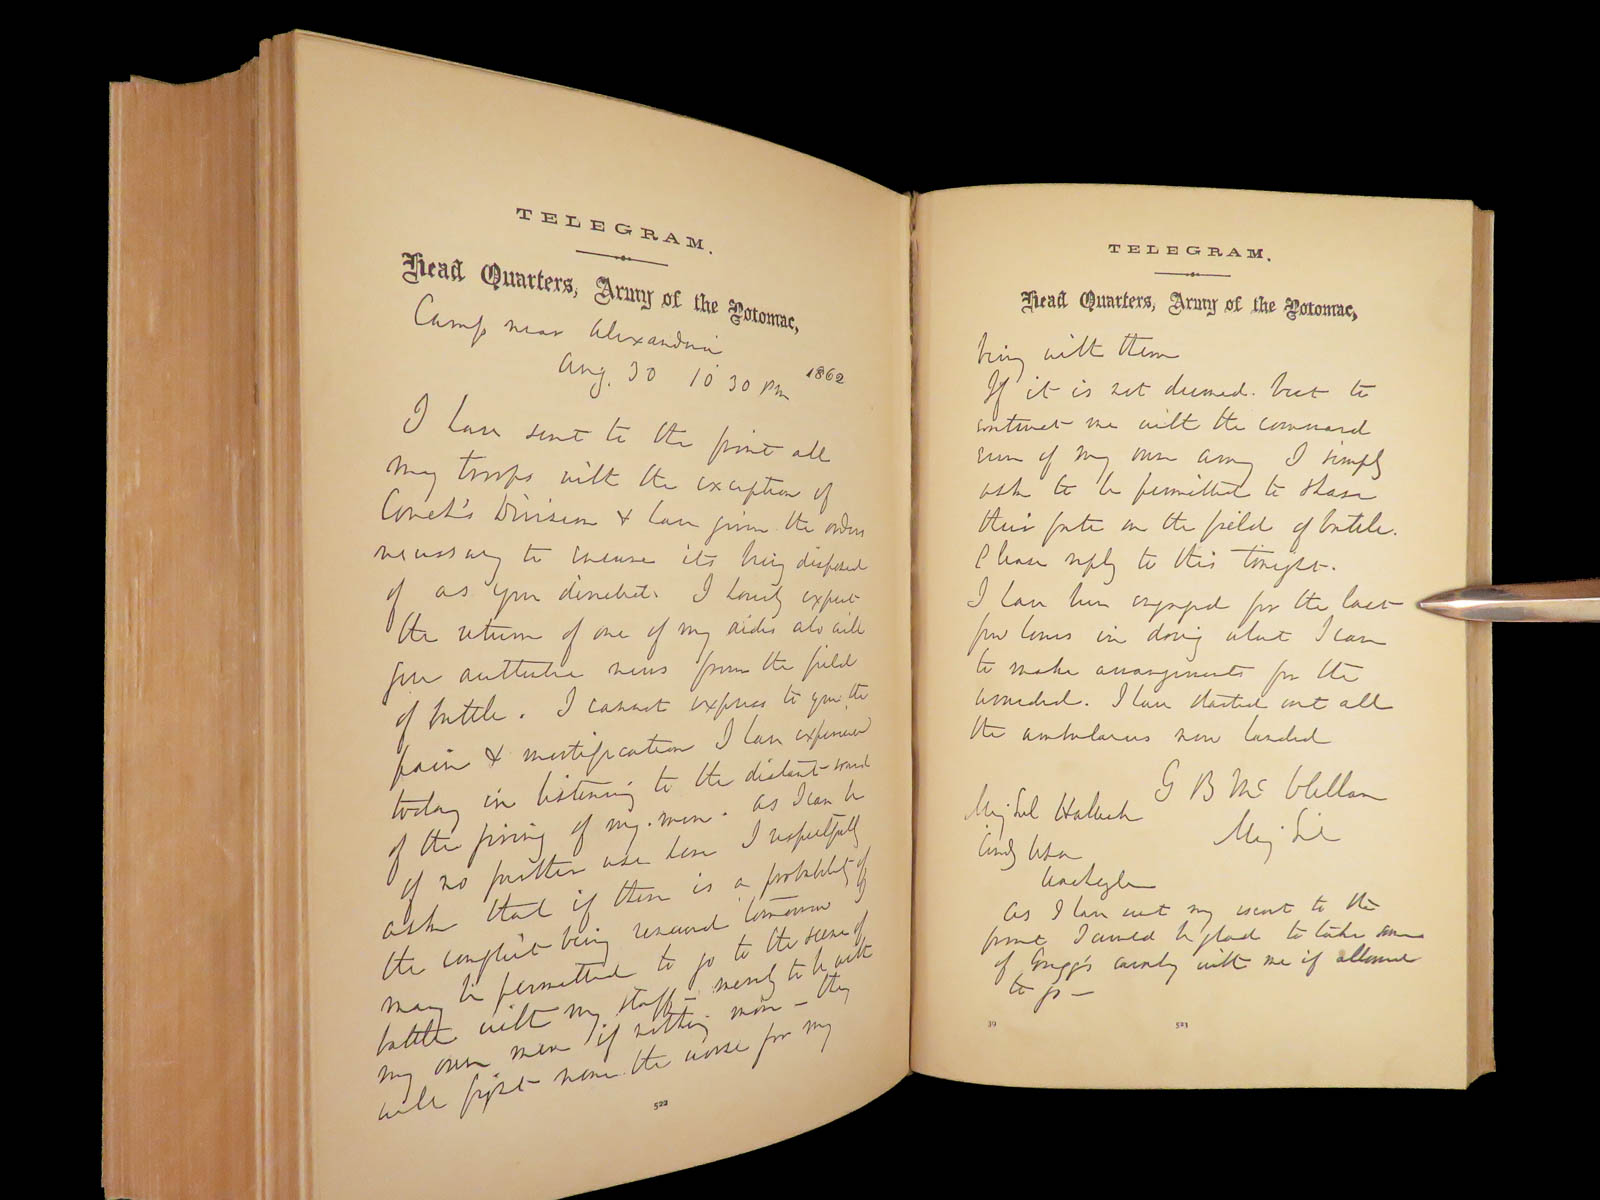 TELEGRAM.
Head Quarters, Army of the Potomac,
Camp near Alexandria
Aug. 30 10 30 PM 1862
I have sent to the front all
my troops with the exception of
Couch's Division & have given the orders
necessary to insure its being disposed
of as you directed. I hourly expect
the return of one of my aides who will
give authentic news from the field
of battle. I cannot express to you the
pain & mortification I have experienced
today in listening to the distant sound
of the firing of my men. As I can be
of no further use here I respectfully
ask that if there is a probability of
the conflict being renewed tomorrow I
may be permitted to go to the scene of
battle with my staff - merely to be with
my own men if nothing more - they
will fight none the worse for my
522
TELEGRAM.
Head Quarters, Army of the Potomac,
being with them
If it is not deemed best to
entrust me with the command
even of my own army I simply
ask to be permitted to share
their fate on the field of battle.
Please reply to this tonight.
I have been engaged for the last
few hours in doing what I can
to make arrangements for the
wounded. I have started out all
the ambulances now landed
G B McClellan
Maj Genl
Maj Genl Halleck
Comdg USA
Washington
As I have sent my escort to the
front I would be glad to take some
of Gregg's cavalry with me if allowed
to go -
39
523